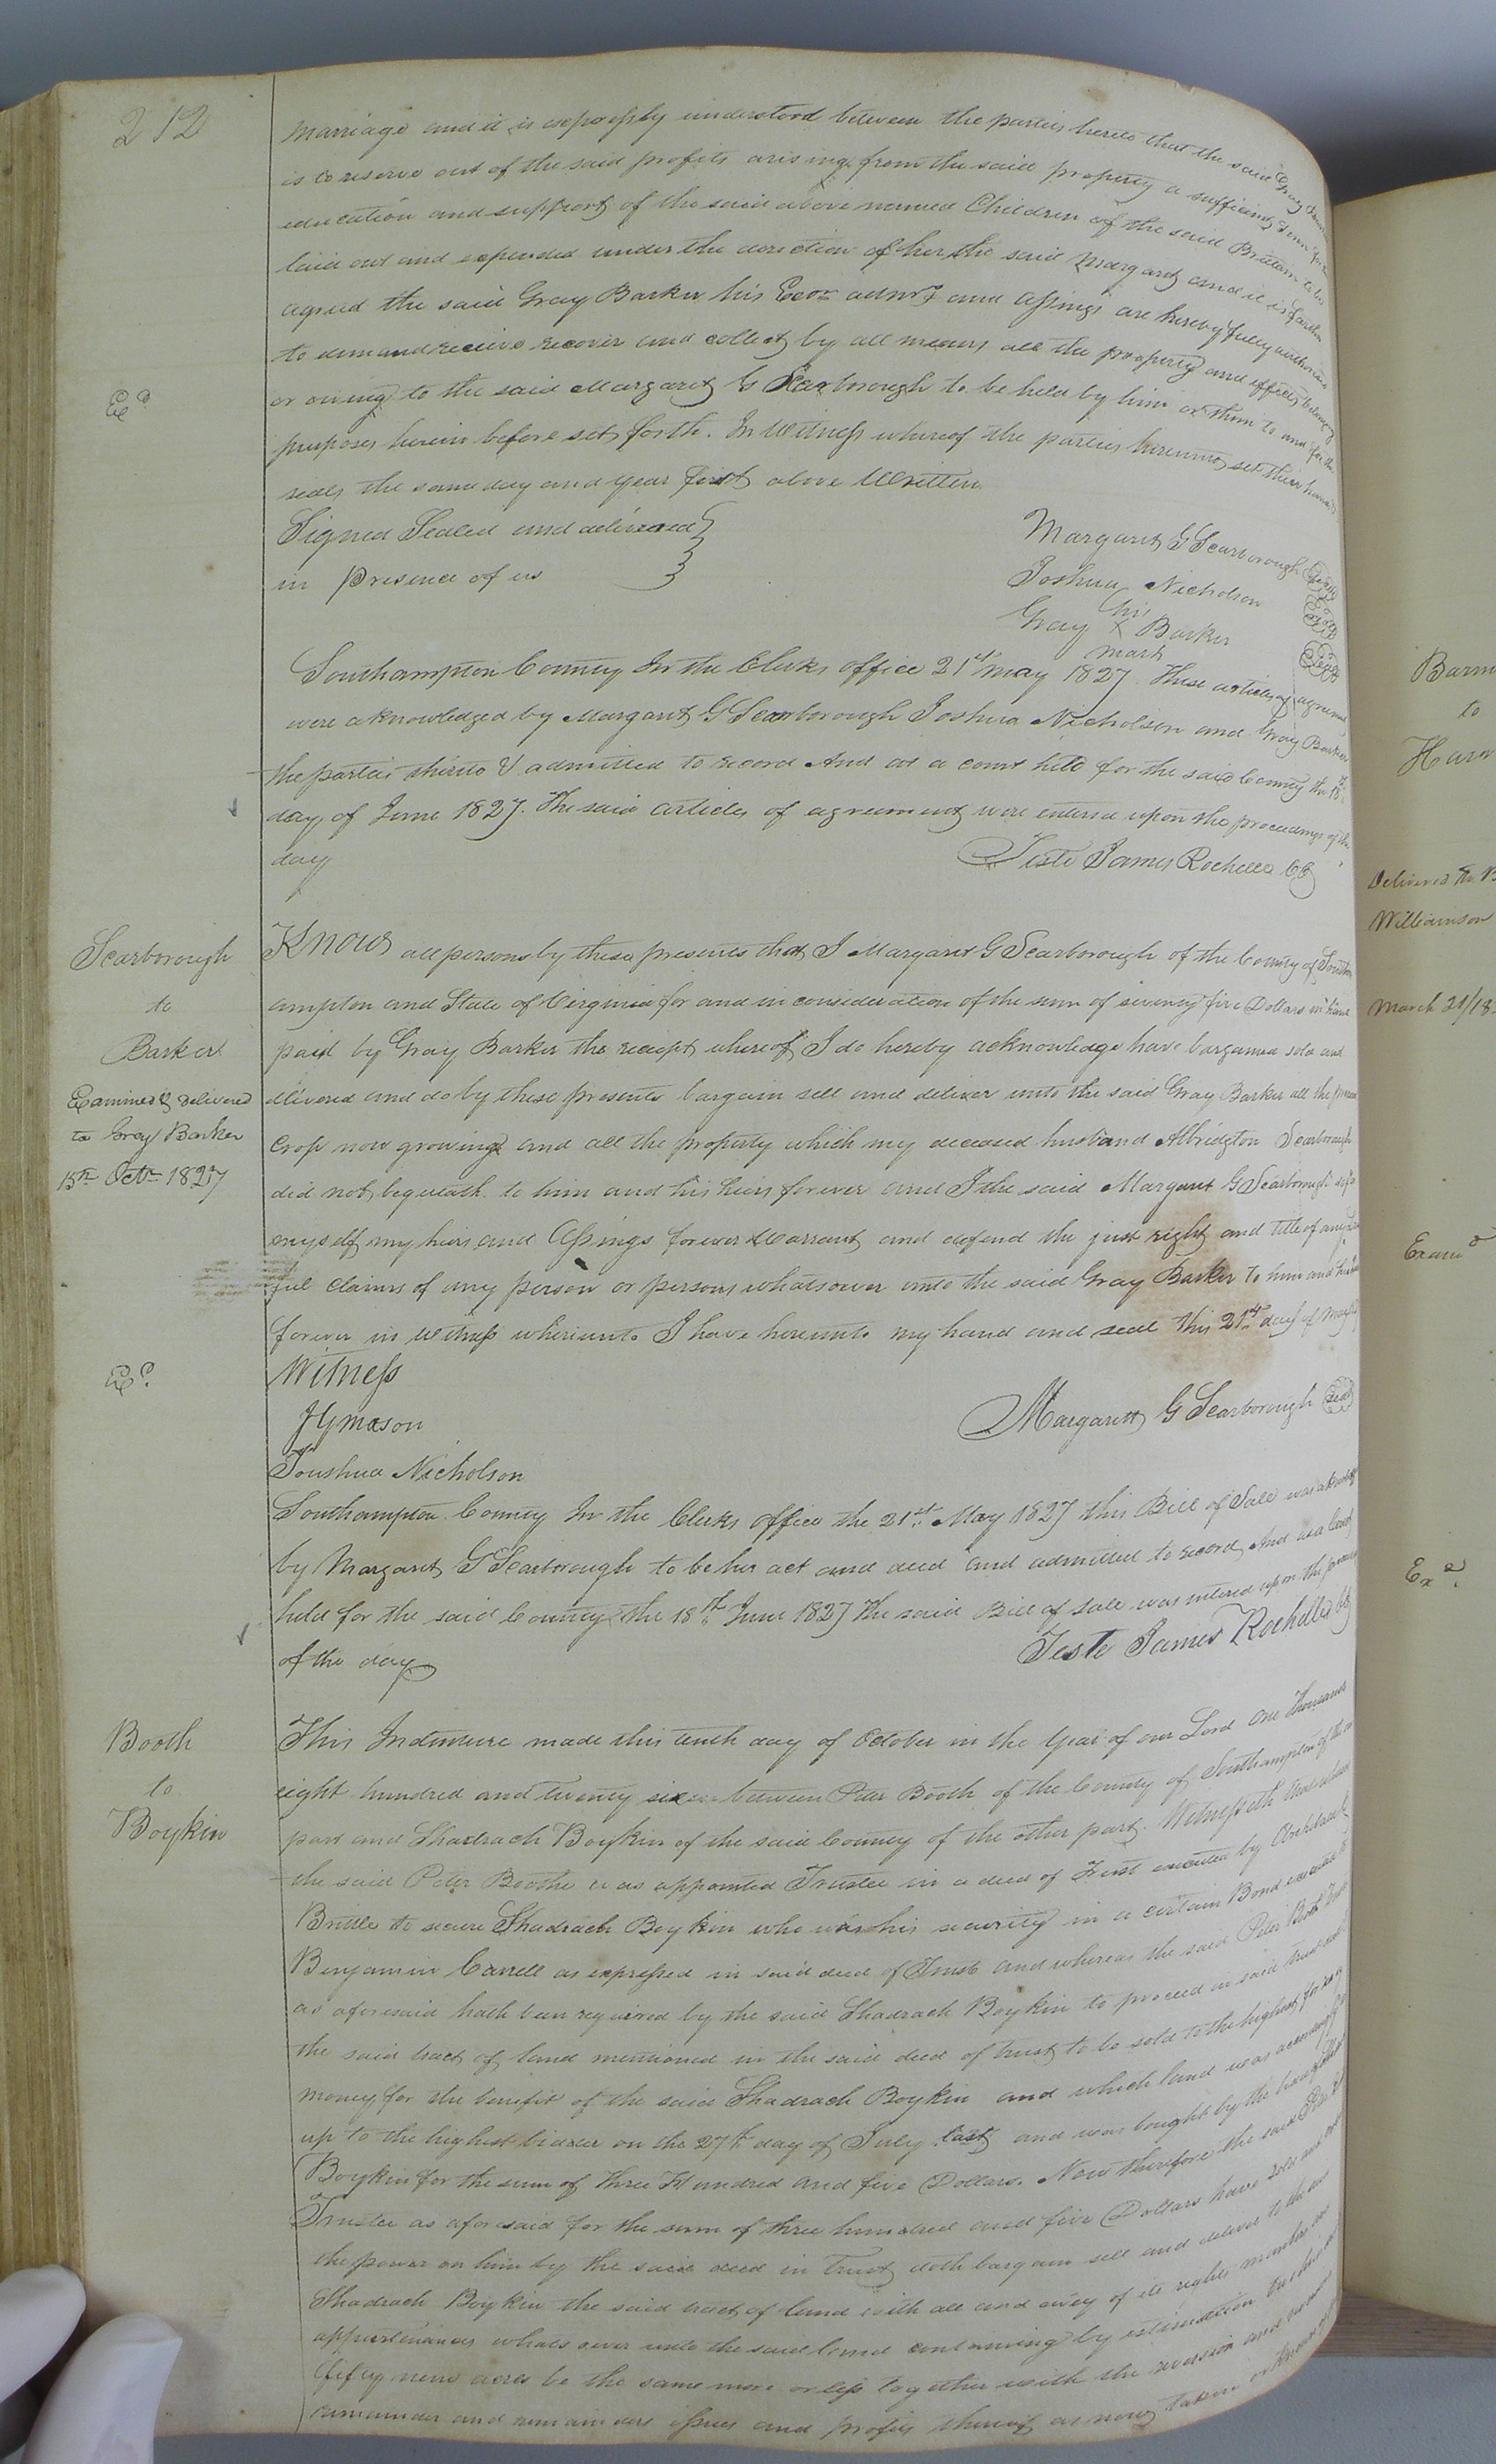 212
marriage and it is expressly understood between the parties hereto that the said Gray
is to reserve out of the said profits arising from the said property a sufficient
education and support of the said above named Children of the said to be
laid out and expended under the direction of her the said Margaret and it is farther
agreed the said Gray Barker his Ecors admrs and assings are hereby fully
to demand receive recover and collect by all means all the property and effects
or owing to the said Margaret G Scarborough to be held by him or them to and for the
purposes herein before set forth. In Witness whereof the parties hereunto set their hands
seals the same day and year first above Written
Ed
Signed Sealed and delivered
in presence of us
Margaret G Scarborough Seal
Joshua Nicholson Seal
his
Gray X Barker Seal
mark
Southampton County In the Clerks office 21st May 1827. These articles of
were aknowledged by Margaret G Scarborough Joshua Nicholson and Gray Barker
the parties thereto & admitted to record And at a court held for the said County the 18th
day of June 1827. The said articles of agreement were entered upon the proceedings of the
day
Teste James Rochelle CC
Scarborough
to
Barker
Examined & delivered
to Gray Barker
15th Octr 1827
Know all persons by these presents that I Margaret G Scarborough of the County of
ampton and State of Virginia for and in consideration of the sum of seventy five Dollars in hand
paid by Gray Barker the receipt whereof I do hereby acknowledge have bargained sold and
delivered and do by these presents bargain sell and deliver unto the said Gray Barker all the
crop now growing and all the property which my deceased husband Albridgton Scarborough
did not bequeath to him and his heirs forever and I the said Margaret G Scarborough
myself my heirs and Assings forever Warrant and defend the just right and title of
ful claims of any person or persons whatsoever unto the said Gray Barker to him and
forever in Witness whereunto I have hereunto my hand and seal this 21st day of May
Ed.
Witness
J G mason
Joushua Nicholson
Margarett G Scarborough Seal
Southampton County In the Clerks office the 21st May 1827 this Bill of Sale was
by Margaret G Scarborough to be her act and deed and admitted to record And at a Court
held for the said County the 18th June 1827 the said Bill of Sale was entered upon the
of the day
Teste James Rochelle CC
Booth
to
Boykin
This Indenture made this tenth day of October in the Year of our Lord One thousand
eight hundred and twenty six between Peter Booth of the County of Southampton of the
part and Shadrach Boykin of the said County of the other part. Witnesseth that
the said Peter Boothe was appointed Trustee in a deed of Trust executed by
Brittle to secure Shadrach Boykin who was his security in a certain Bond executed
Benjamin as expressed in said deed of Trust and whereas the said Peter Booth
as aforesaid hath been required by the said Shadrach Boykin to proceed
the said tract of land mentioned in the said deed of trust to be sold to the highest for
money for the benefit of the said Shadrach Boykin and which land was
up to the highest bidder on the 27th day of July last and was bought by the
Boykin for the sum of three Hundred and five Dollars. Now therefore the said
Trustee as aforesaid for the sum of three hundred and five Dollars have sold
the power on him by the said deed in Trust doth bargain sell and deliver to the
Shadrach Boykin the said tract of land with all and every of its rights members
appurtenances whatsoever unto the said land containing by estimation
fifty nine acres be the same more or less together with the reversion and
remainder and remainders issues and profits thereof as now taken or
to
Delivered
Williamson
March 21/18
Examd
Exd.